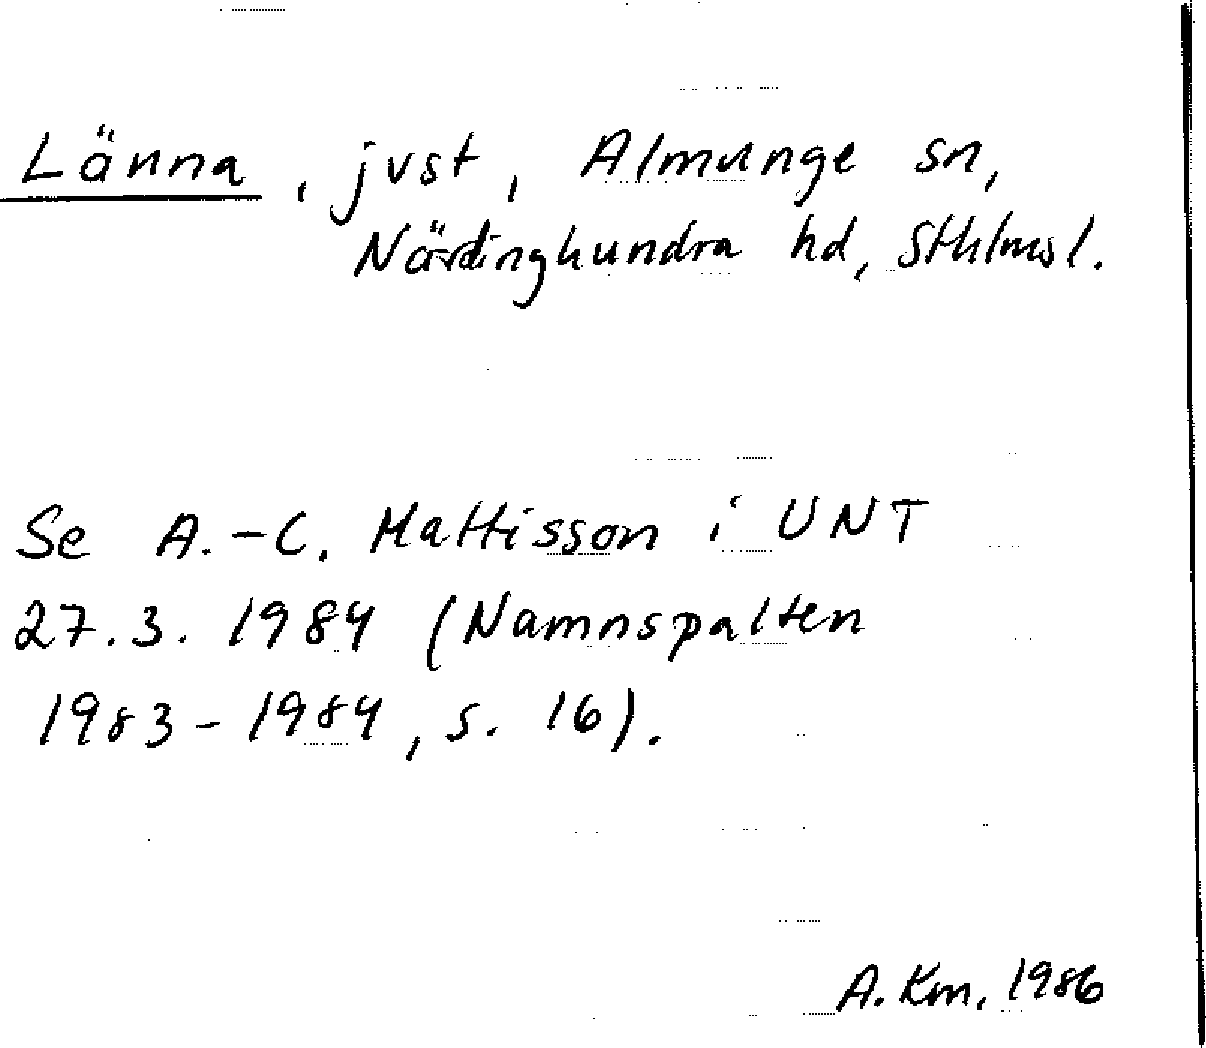 Länna, jvst, Almunge sn,
Närdinghundra hd, Sthlms l.
Se A.-C. Mattisson i UNT
27.3. 1984 (Namnspalten
1983-1984, s. 16).
A. Km. 1986